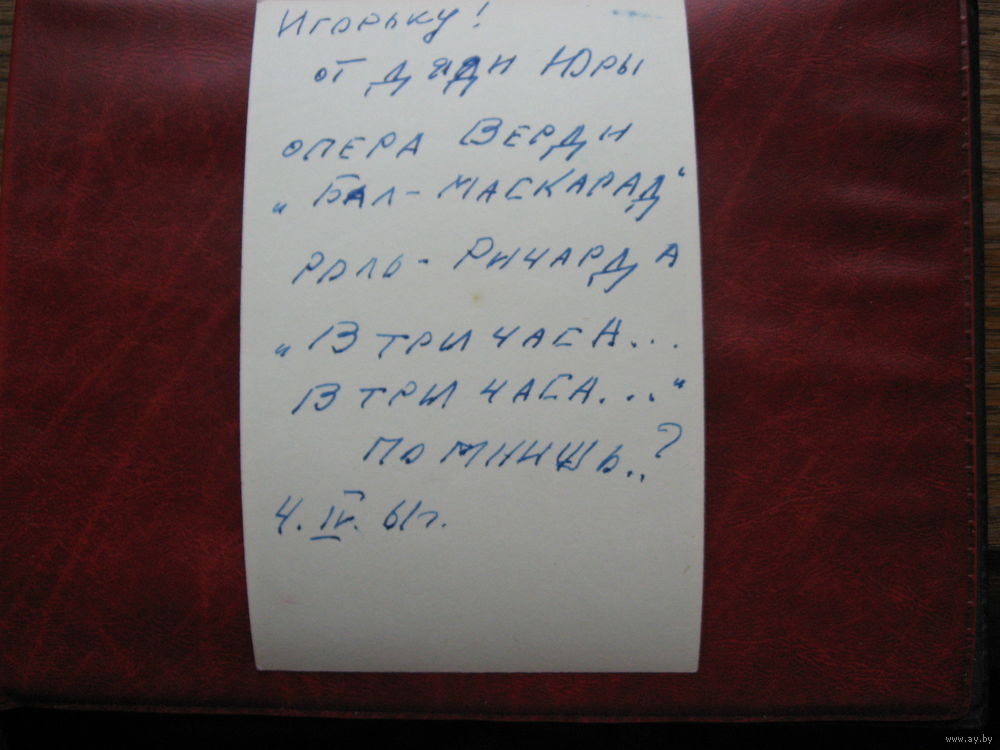 Игорьку!
от дяди Юры
опера Верди
„Бал-маскарад"
роль - Ричарда
„В три часа...
в три часа...."
помнишь..?
4. IV. 61г.
www.ay.by